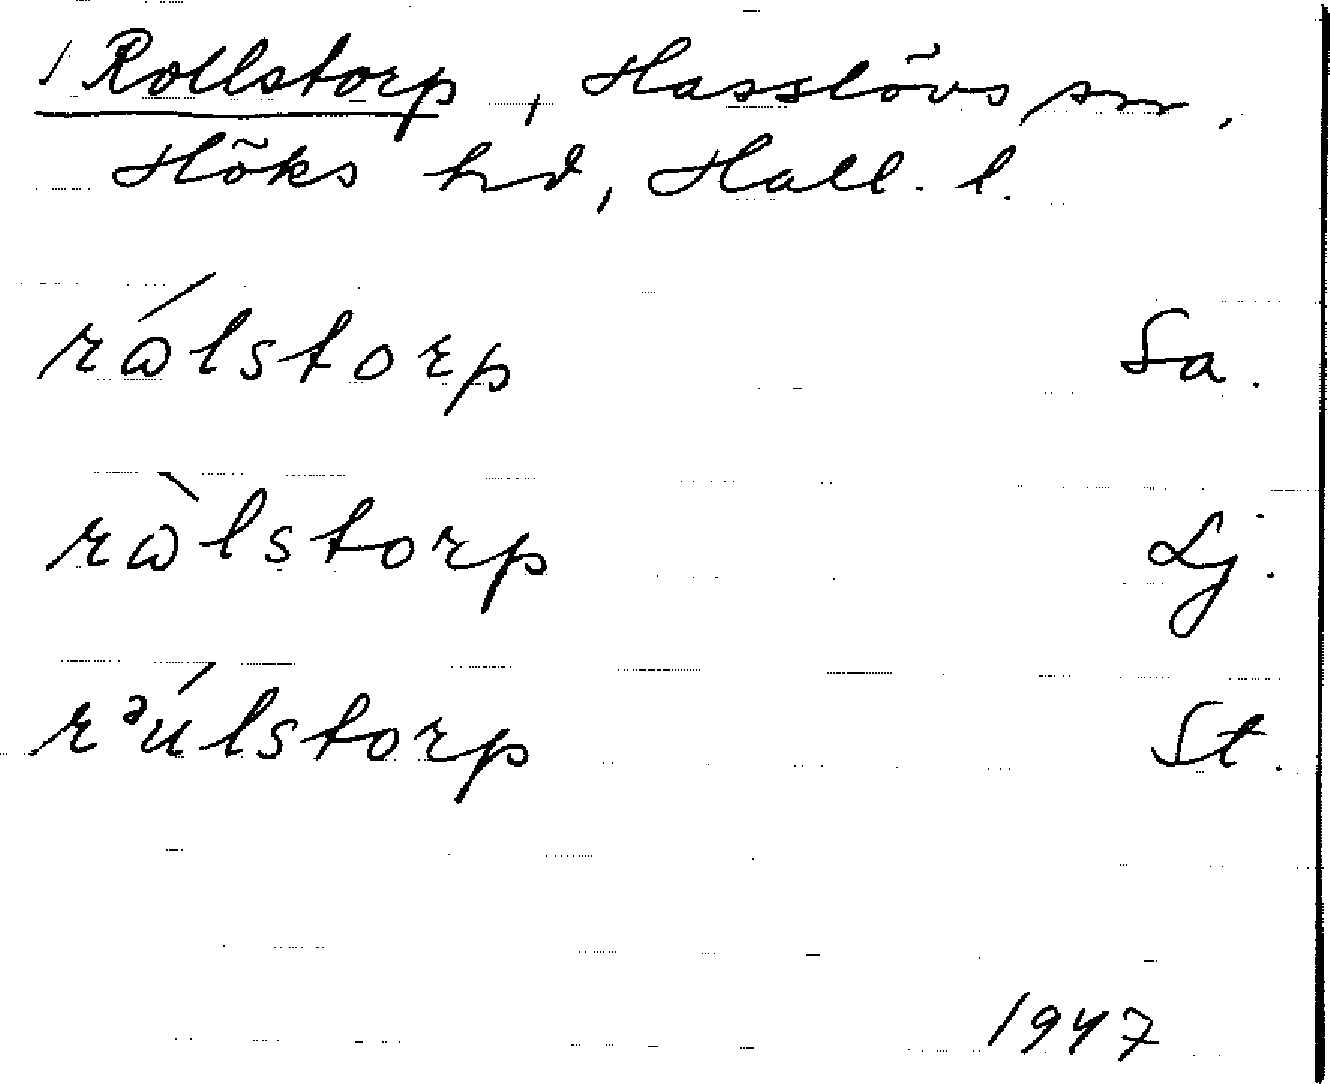 / Rollstorp, Hasslövs sn,
Höks hd, Hall. l.
rώlstorp Sa.
rὼlstorp Lj.
rᵊúlstorp St.
1947